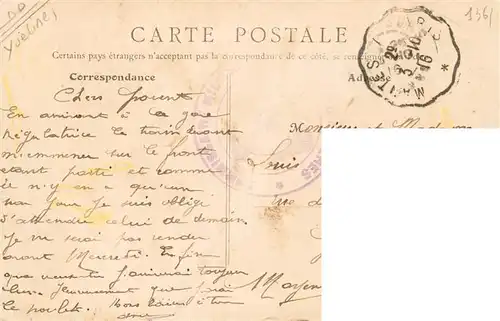 Yvelines
CARTE POSTALE
1361
Certains pays étrangers n'acceptant pas la correspondance de ce côté, se renseigner
Correspondance
Adresse
Chers parents
En arrivant à la gare
Régulatrice le train devant
m'emmener sur le front
étant parti et comme
il n'y en a qu'un
par jour je suis obligé
d'attendre celui de demain.
Je ne serai pas rendu
avant Mercredi. Enfin
que veux tu j'arriverai toujours
Heureusement que j'avais
le poulet. Bons baisers à tous
Monsieur et Madame
Louis
rue d
Mayen